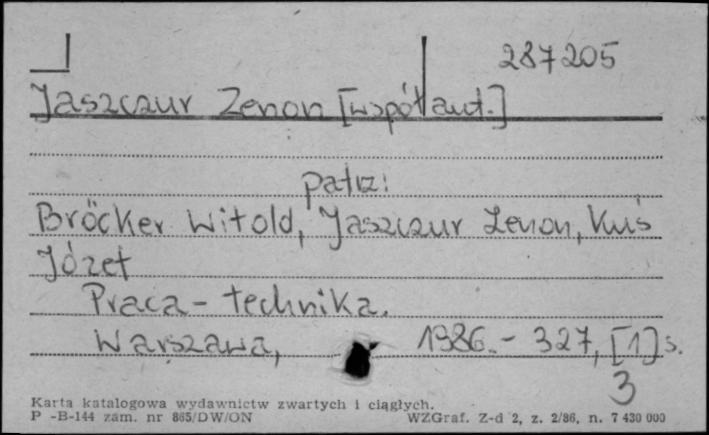 287205
Jaszczur Zenon [współaut.]
patrz:
Bröcker Witold, Jaszczur Zenon, Kuś
Józef
Praca - technika.
Warszawa, 1986. - 327, [1] s.
3
Karta katalogowa wydawnictw zwartych i ciągłych.
P -B-144 zam. nr 865/DW/ON WZGraf. Z-d 2, z. 2/86, n. 7 430 000